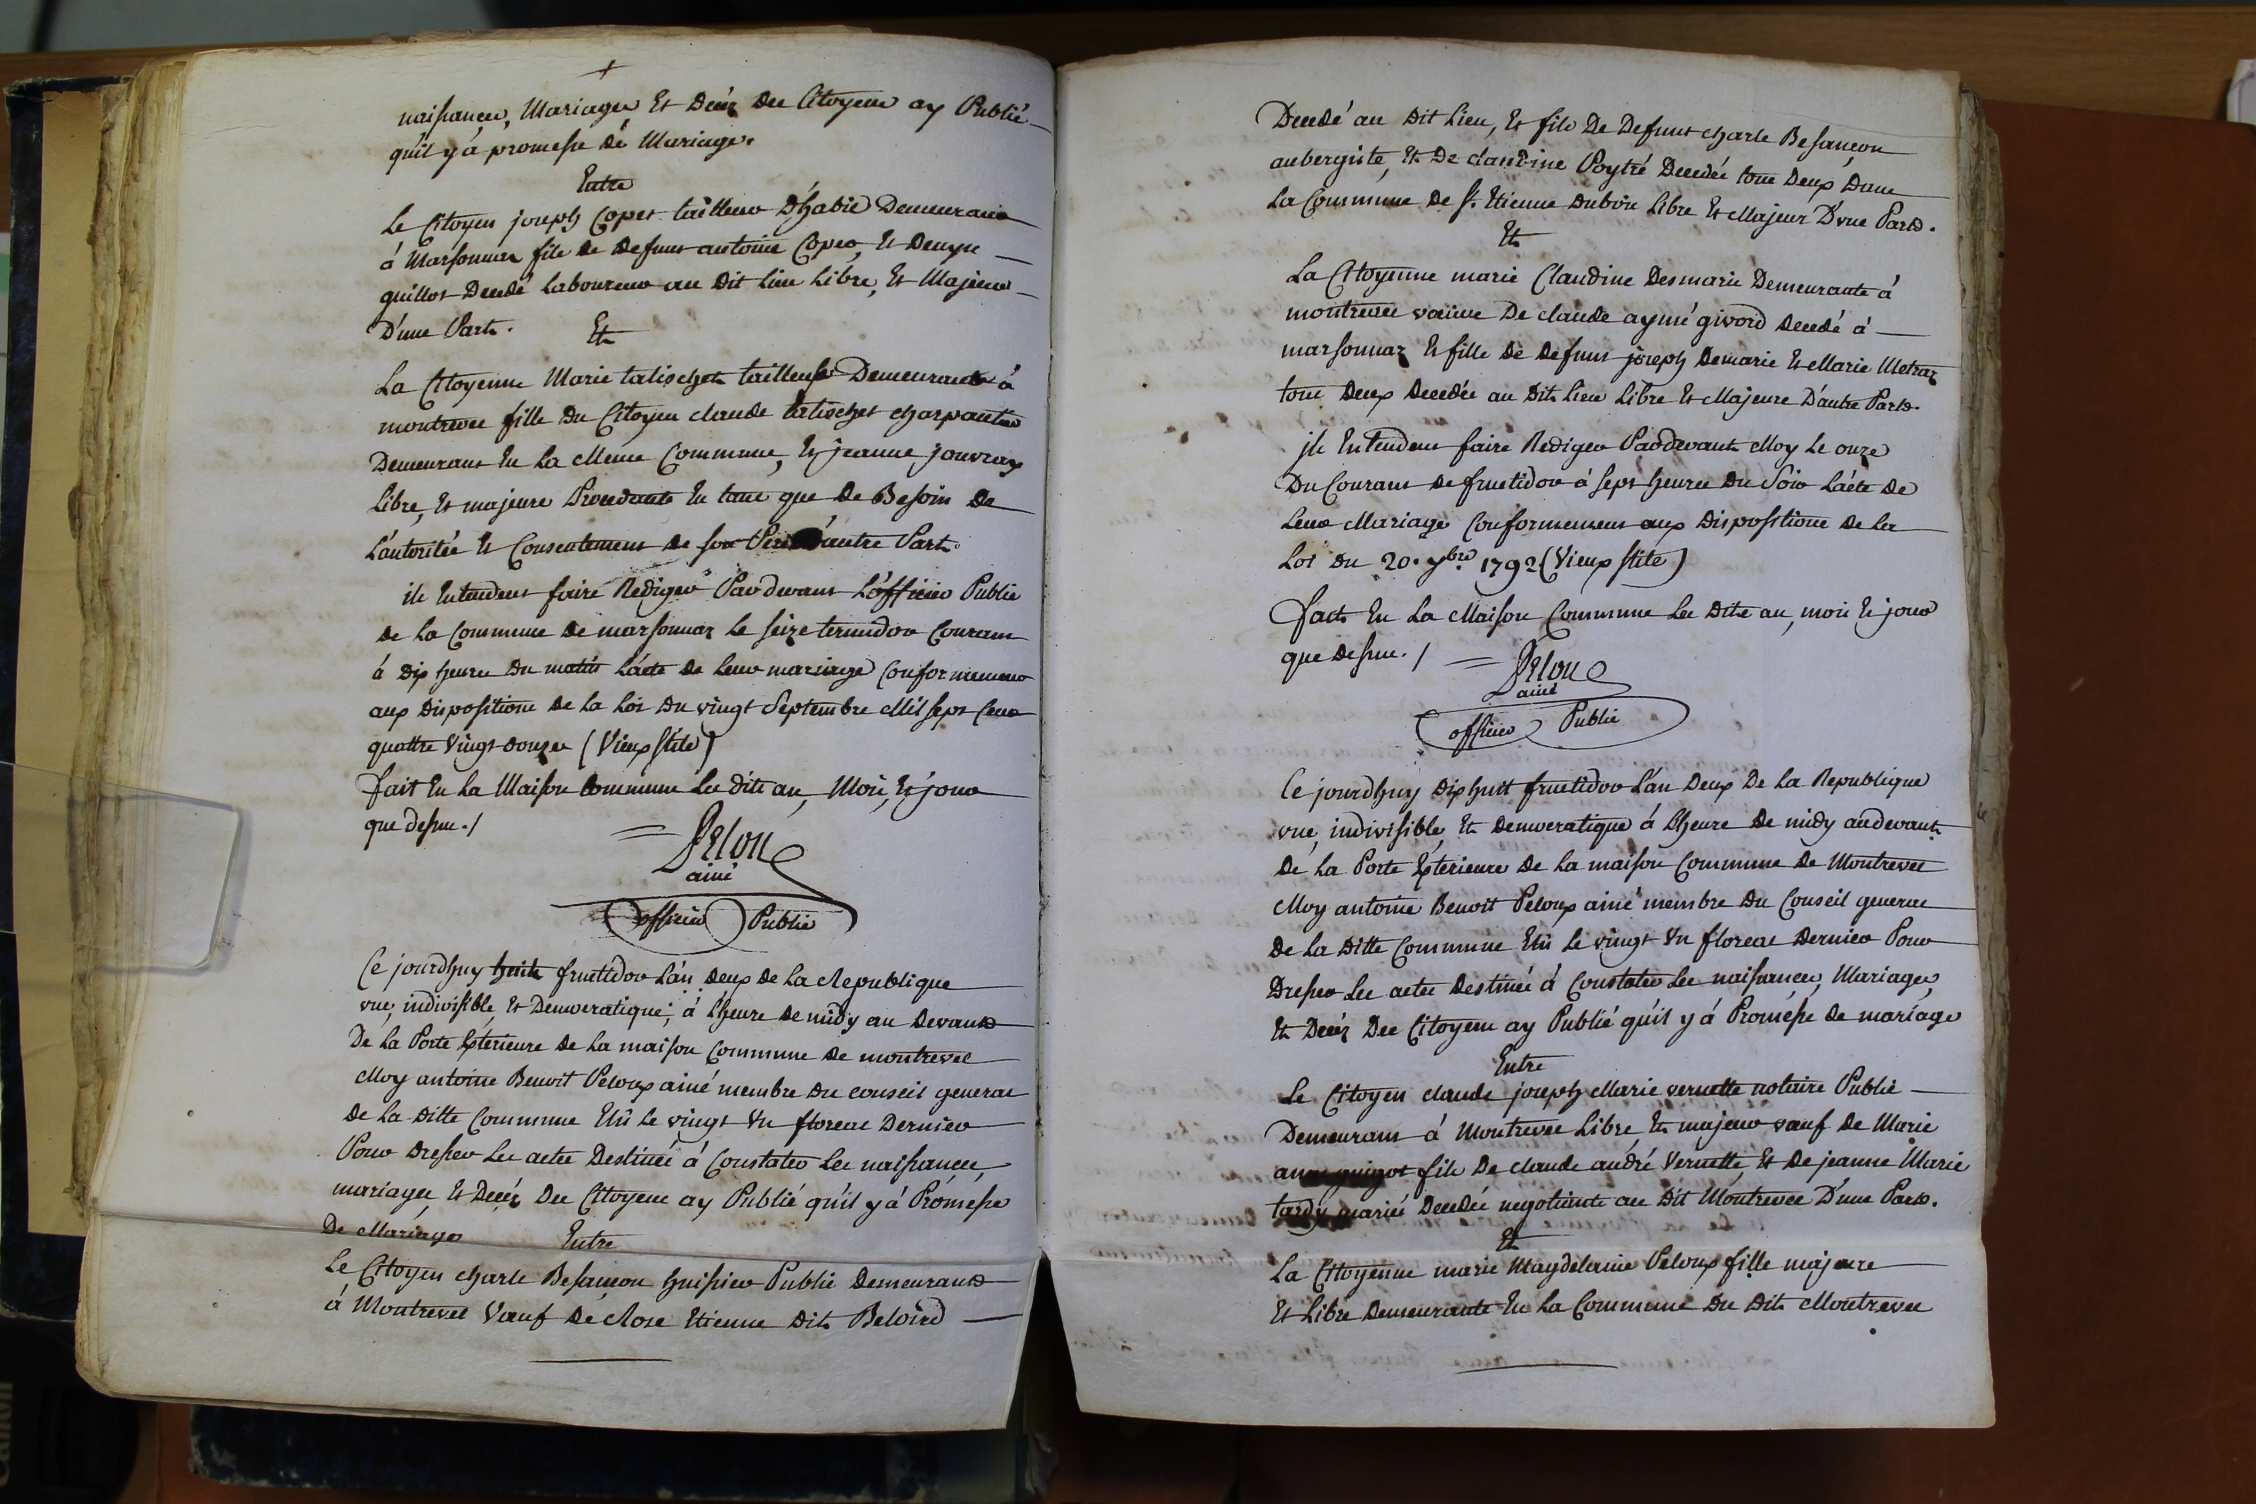 naissances, Mariages Et Decés Des Citoyens ay Publié
qu'il y á promesse dé Mariage.
Entre
Le Citoyen joseph Copet tailleur D'habis Demeurans
á Marsonnas fils de defunt antoine Copet, Et Denyse
guillot Decedé Laboureur au Dit Lieu Libre, Et Majeur
D'une Part. Et
La Citoyenne Marie talischet tailleuse Demeurante á
montrevel fille Du Citoyen claude talischet charpantier
Demeurans En La Meme Commune, Et jeanne jouvray
Libre, Et majeure Procedante En tans que de Besoin de
L'autoritée Et Consentement de son Pere D'autre Part.
ils Entendent faire Rediger Pardevant L'officier Public
de La Commune de marsonnas Le seize termidor Courant
á dix heures du matin L'acte de Leur mariage Conformement
aux Dispositions de La Loi Du vingt Septembre Mil sept Cent
quattre Vingt-douze (Vieux stile)
fait En La Maison Commune Les dits an, Mois, Et jour
que dessus./
Pelou
ainé
officier Public
Ce jourdhuy huit fructidor L'an deux de La Republique
une, indivisible, Et Democratique, á L'heure de midy au Devant
De La Porte Exterieure de La maison Commune de montrevel
Moy antoine Benoit Peloux ainé membre du conseil general
de La ditte Commune Elû Le vingt Un floreal Dernier
Pour dresser Les actes Destinés á Constater Les naissances,
mariages, Et Decés Des Citoyens ay Publié qu'il y á Promesse
De Mariage Entre
Le Citoyen charle Besançon huissier Public Demeurant
á Montrevel Vœuf de Rose Etienne Dit Beloird
Decedé au Dit Lieu, Et fils De Defunt charle Besançon
aubergiste, Et De claudine Poytré Decedés tous Deux Dans
La Commune de St. Etienne dubois Libre Et Majeur D'une Part.
Et
La Citoyenne marie Claudine Desmarie Demeurante á
montrevel vœuve De claude aymé givord decedé á
marsonnas Et fille dé defunt joseph Demarie Et Marie Metraz
tous Deux Decedés au Dit Lieu Libre Et Majeure D'autre Part.
jls Entendent faire Rediger Pardevant Moy Le onze
Du Courant de fructidor á sept heures Du Soir L'acte de
Leur Mariage Conformement aux Dispositions de La
Loi Du 20. 7bre. 1792 (Vieux stile)
fait En La Maison Commune Les Dits an, mois Et jour
que dessus./
Pelou
ainé
officier Public
Ce jourdhuy dix huit fructidor L'an deux De La Republique
une, indivisible, Et Democratique á L'heure De midy audevant
de La Porte Exterieure de La maison Commune de Montrevel
Moy antoine Benoit Peloux ainé membre Du Conseil general
De La ditte Commune Elû Le vingt Un floreal Dernier Pour
Dresser Les actes Destinés á Constater Les naissances, Mariages,
Et Decés Des Citoyens ay Publié qu'il y á Promésse de mariage
Entre
Le Citoyen claude joseph Marie vernette notaire Public
Demeurant á Montrevel Libre Et majeur vœuf de Marie
anne guigot fils De claude andré Vernette, Et De jeanne Marie
tardy mariés Decedés negotiants au Dit Montrevel D'une Part.
Et
La Citoyenne marie Magdelaine Peloux fille majeure
Et Libre Demeurante En La Commune Du Dit Montrevel